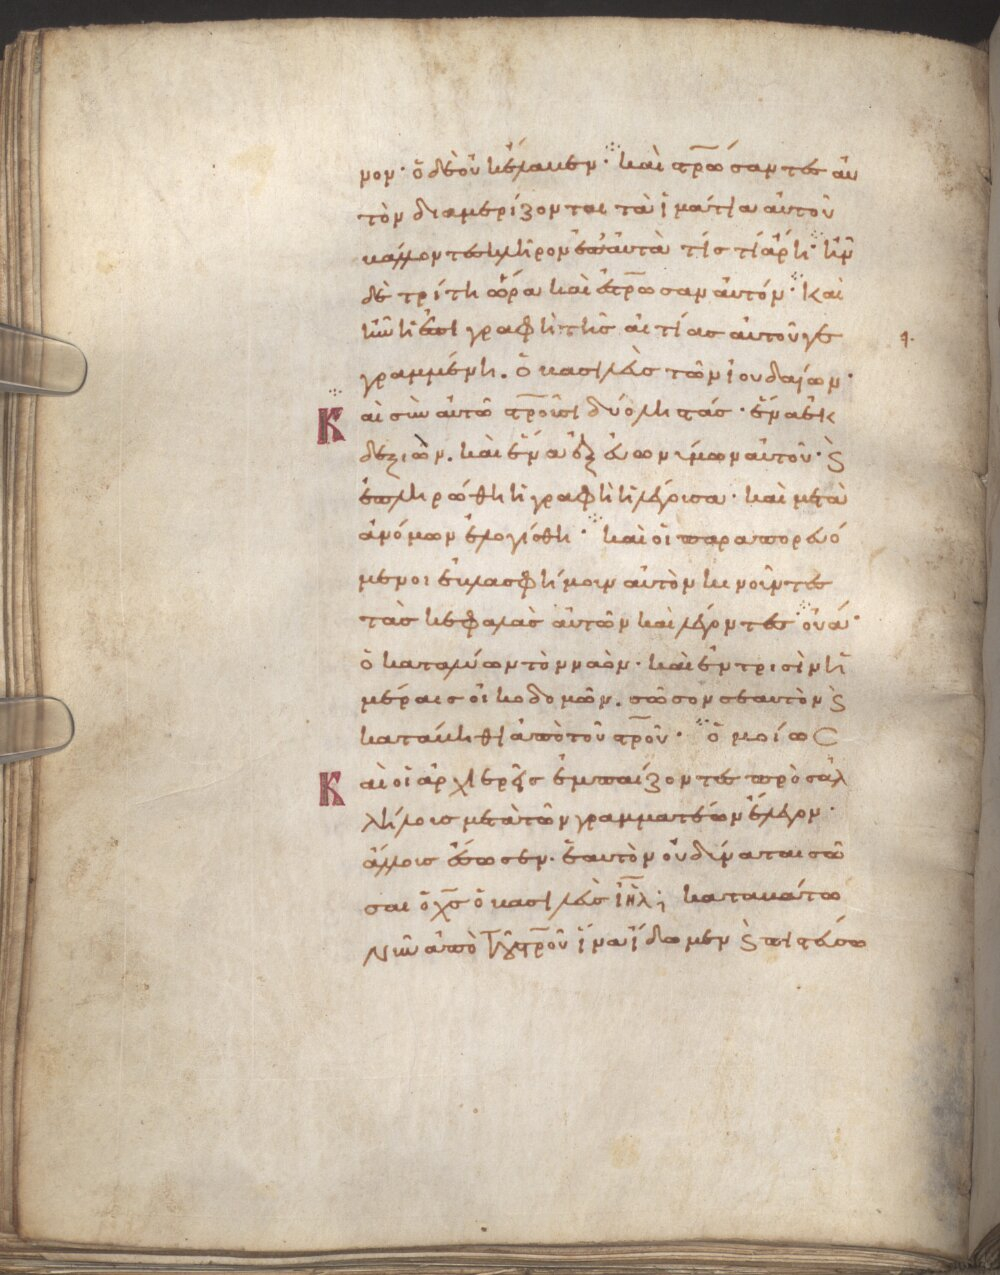 νον· ὁ δὲ οὐκ ἔλαβεν· καὶ στ̅ρ̅ώσαντες αὐ
τὸν διαμερίζονται τὰ ἱμάτια αὐτοῦ
βάλλοντες κλῆρον ἐπ' αὐτὰ τίς τί ἄρῃ· ἦν
δὲ τρίτη ὥρα καὶ ἐστ̅ρ̅ωσαν αὐτόν· Καὶ
ἦν ἡ ἐπιγραφὴ τῆς αἰτίας αὐτοῦ γε
γραμμένη. ὁ βασιλεὺς τῶν ἰουδαίων·
Καὶ σὺν αὐτῷ στ̅ρ̅οῦσι δύο ληστάς· ἕνα ἐκ
δεξιῶν. καὶ ἕνα ἐξ εὐωνύμων αὐτοῦ· ϗ
ἐπληρώθη ἡ γραφὴ ἡ λέγουσα· καὶ μετὰ
ἀνόμων ἐλογίσθη· καὶ οἱ παραπορευό
μενοι ἐβλασφήμουν αὐτὸν κινοῦντες
τὰς κεφαλὰς αὐτῶν καὶ λέγοντες οὐά·
ὁ καταλύων τὸν ναὸν· καὶ ἐν τρισὶν ἡ
μέραις οἰκοδομῶν. σῶσον σεαυτὸν ϗ
κατάβηθι ἀπὸ τοῦ στ̅ρ̅οῦ· ὁμοίως
Καὶ οἱ ἀρχιερεῖς ἐμπαίζοντες πρὸς ἀλ
λήλοις μετὰ τῶν γραμματέων ἔλεγον·
ἄλλους ἔσωσεν. ἑαυτὸν οὐ δύναται σῶ
σαι ὁ χ̅ς̅ ὁ βασιλεὺς ἰ̅η̅λ̅; καταβάτω
νῦν ἀπὸ τοῦ στ̅ρ̅οῦ ἵνα ἴδωμεν ϗ πιστεύσω